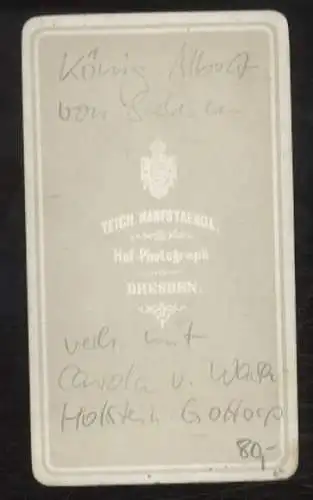 König Albert
von Sachsen
TEICH. HANFSTAENGL.
Hof-Photograph
DRESDEN.
verh. mit
Carola v. Wasa-
Holstein Gottorp
80,-